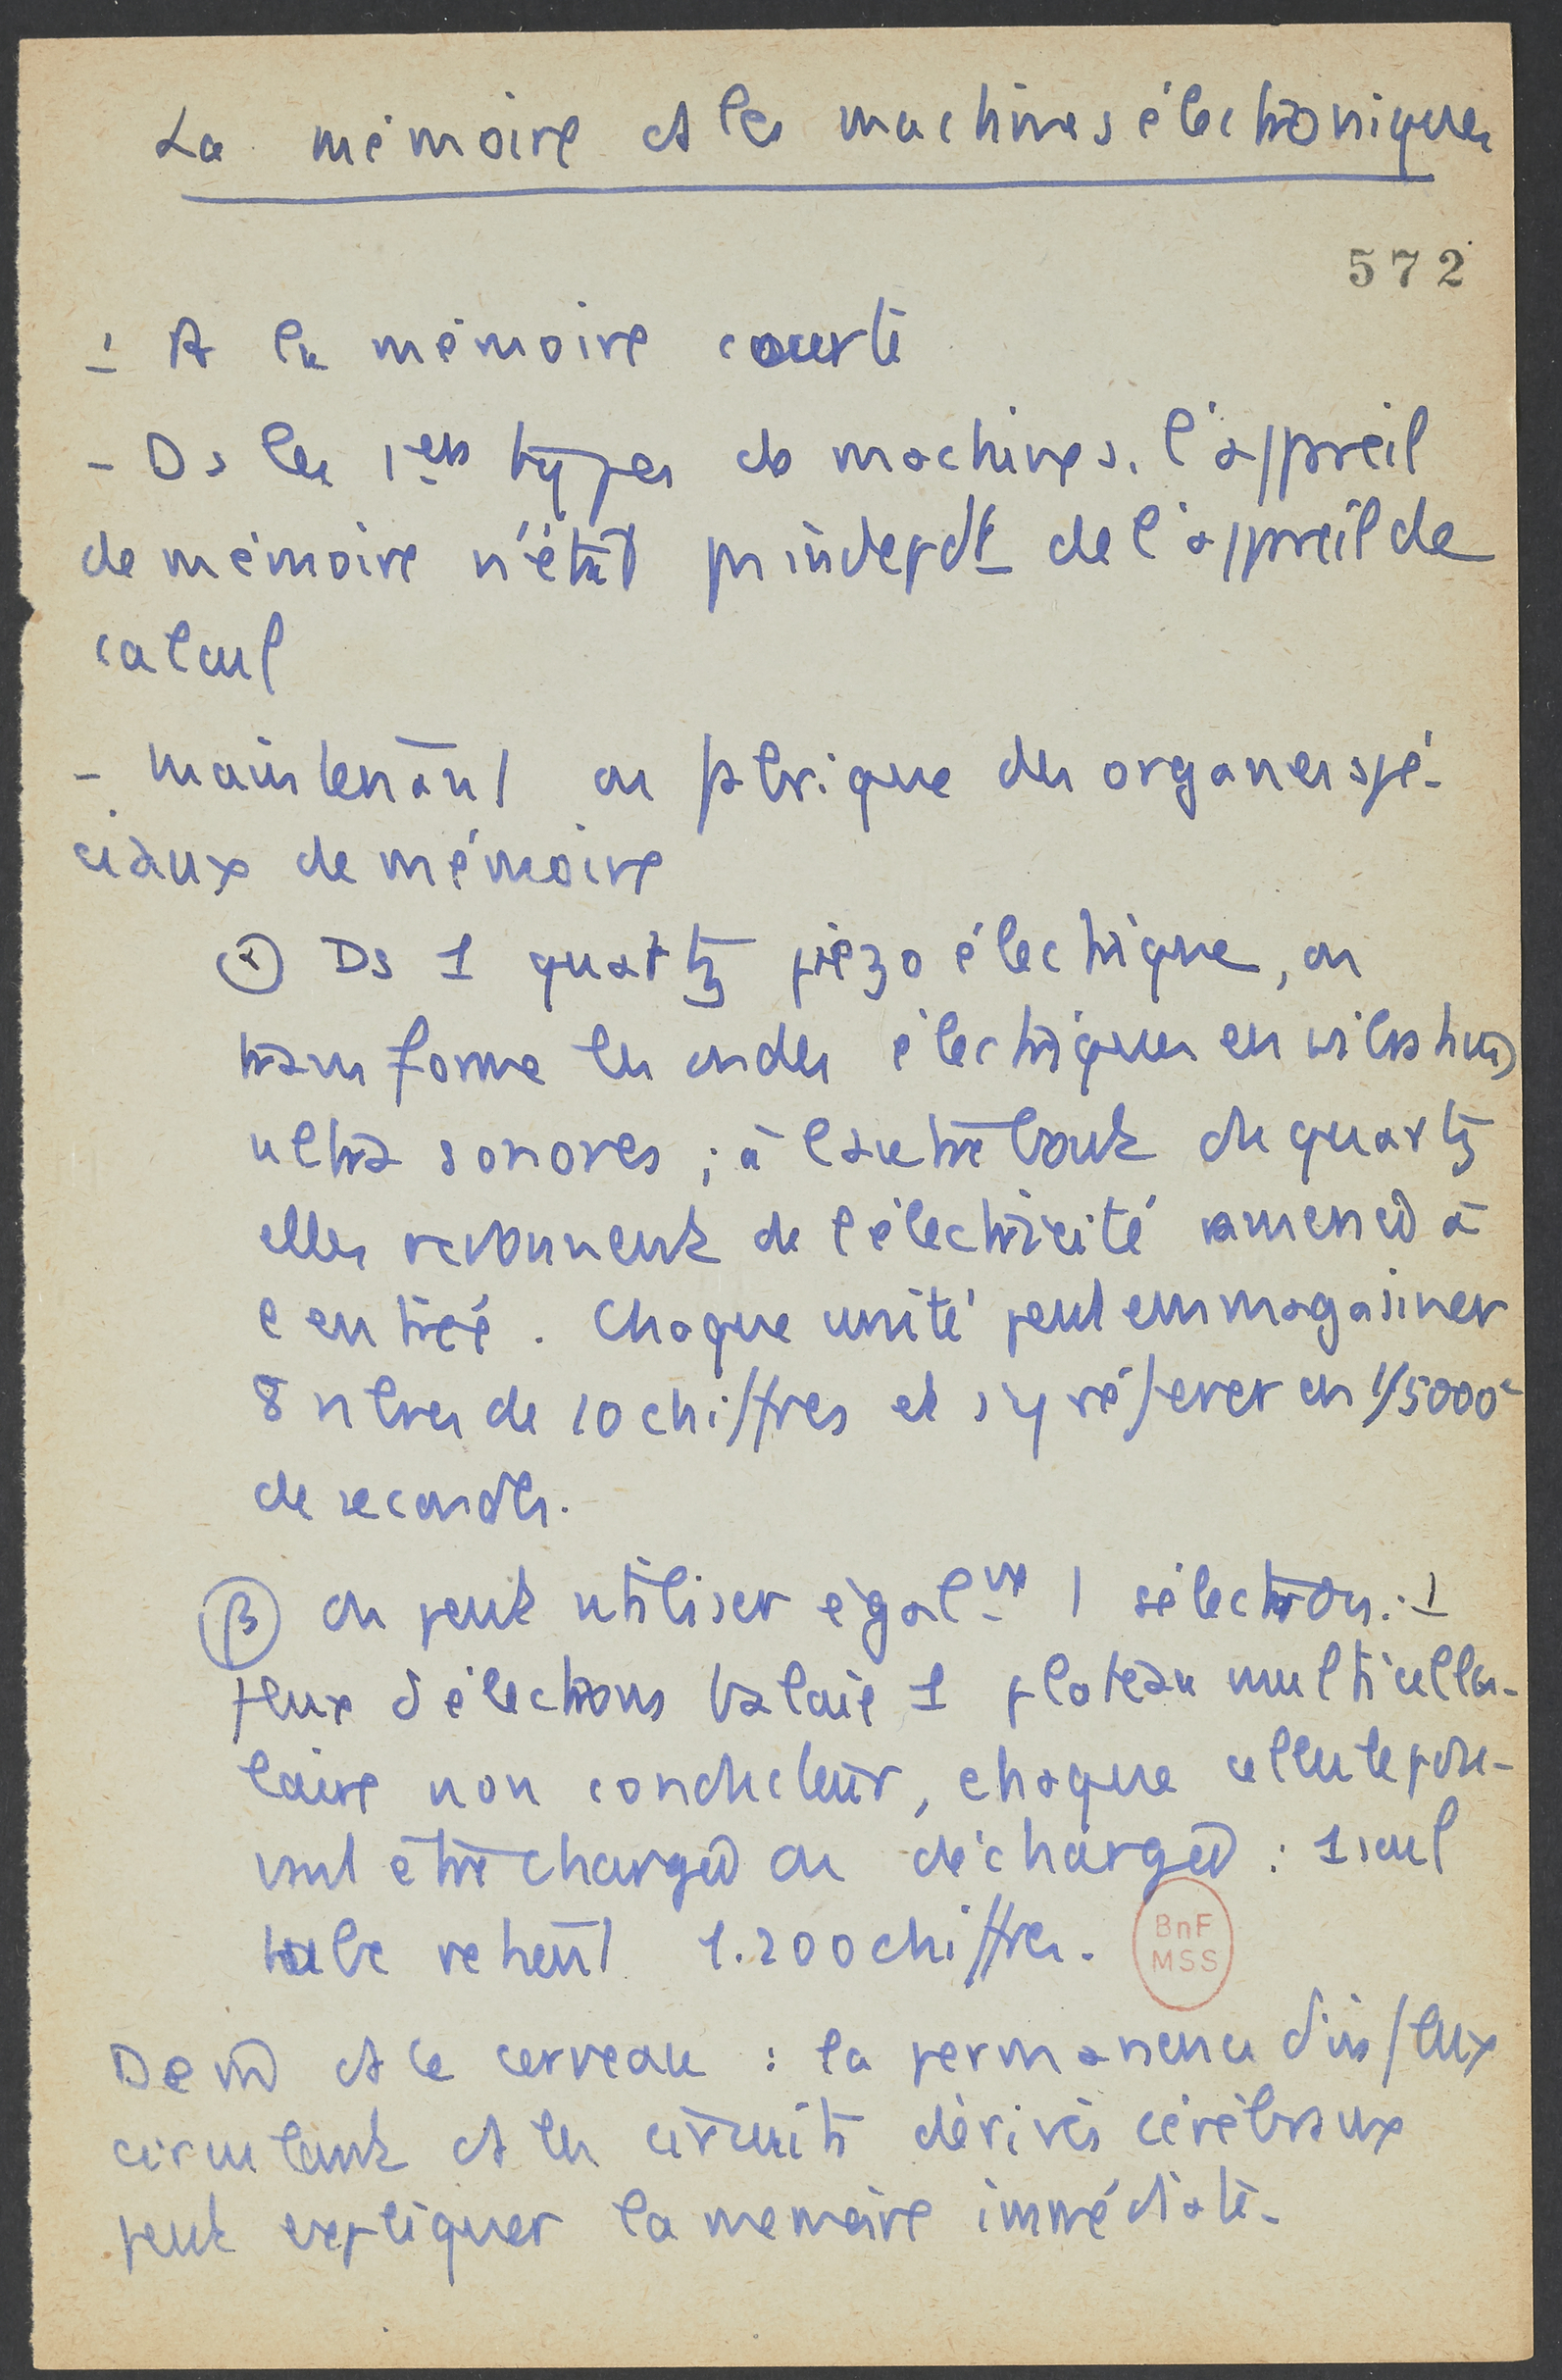 La mémoire et les machines électroniques
572
1 A la mémoire courte
- Ds les 1ers types de machines, l'appareil
de mémoire n'était pas indepdt de l'appareil de
calcul
- maintenant on fabrique des organes spé-
ciaux de mémoire
α Ds 1 quartz piezo électrique, on
transforme les ondes électriques en vibrations
ultra sonores ; à l'autre bout du quartz
elles redonnent de l'électricité ramenée à
l'entrée. Chaque unité peut emmagasiner
8 nbres de 10 chiffres et s'y référer en 1/5000e
de secondes.
β on peut utiliser égalmt 1 sélectron : 1
flux d'électrons balaie 1 plateau multicellu-
laire non conducteur, chaque cellule pou-
vant être chargée ou déchargée : 1 seul
tube retient 1.200 chiffres.
BnF
MSS
De m̂ et le cerveau : la permanence d'influx
circulant et les circuits dérivés cérébraux
peut expliquer la memoire immédiate.